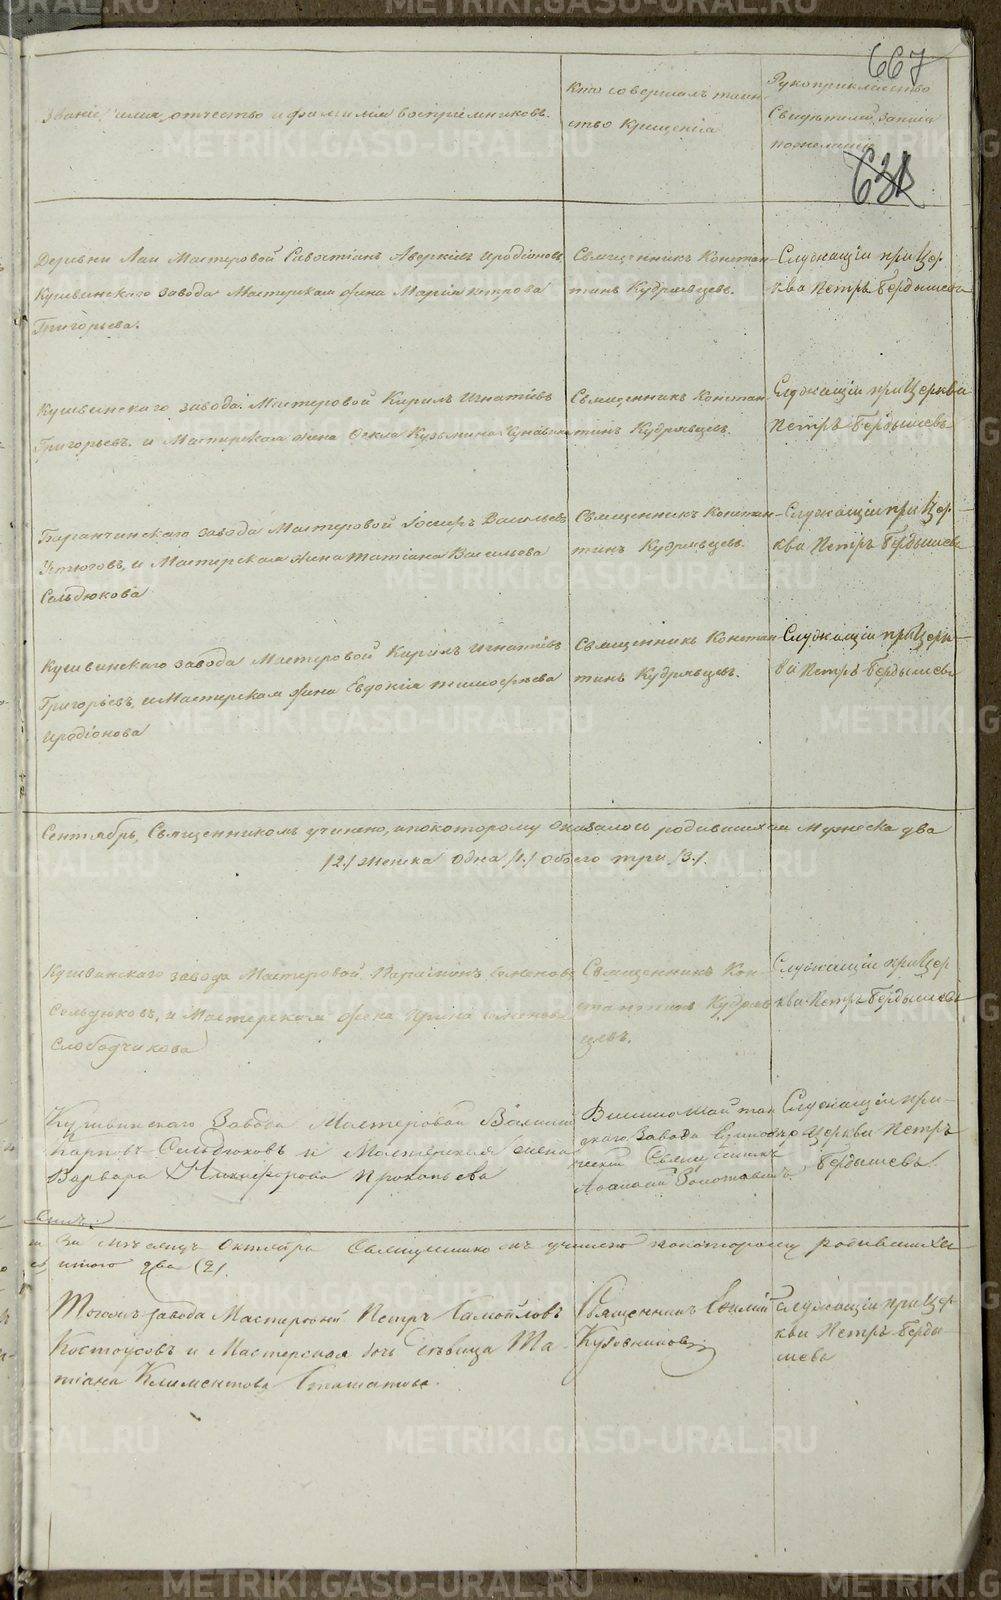 667
Званіе, имя, отчество и фамилія воспріемниковъ.
Кто совершалъ таин-
ство Крещенія
Рукоприкладство
Свидѣтелей записи
по желанію
632
Деревни Лаи Мастеровой Савостіанъ Аверкіевъ Иродіоновъ
Кушвинскаго завода Мастерская жена Марія Петрова
Григорьева.
Священникъ Констан-
тинъ Кудрявцевъ.
Служащій при Цер-
кви Петръ Бердышевъ
Кушвинскаго завода Мастеровой Кирилъ Игнатіевъ
Григорьевъ и Мастерская жена Фекла Кузьмина
Священникъ Констан-
тинъ Кудрявцевъ.
Служащій при Церкви
Петръ Бердышевъ
Баранчинскаго завода Мастеровой Іосифъ Васильевъ
Устюговъ, и Мастерская жена Татіана Васильева
Сельдюкова
Священникъ Констан-
тинъ Кудрявцевъ.
Служащій при Цер-
кви Петръ Бердышевъ
Кушвинскаго завода Мастеровой Кирилъ Игнатіевъ
Григорьевъ, и Мастерская жена Евдокія Тимофеева
Иродіонова
Священникъ Констан-
тинъ Кудрявцевъ.
Служащій при Церк-
ви Петръ Бердышевъ
Сентябрь, Священникомъ учинено, и по которому оказалось родившихся Мужеска два
/2./ женска одна /1./ обоего три /3./.
Кушвинскаго завода Мастеровой Семеновъ
Сельдюковъ, и Мастерская жена Ирина Семенова
Слободчикова
Священникъ Кон-
стантинъ Кудряв-
цевъ.
Служащій при Цер-
кви Петръ Бердышевъ
Кушвинскаго Завода Мастеровой Василій
Карповъ Сельдюковъ и Мастерская жена
Варвара Никифорова Прокопьева
Висимошайтан
скаго Завода Единовѣр
ческій Священникъ
Служащій при
Церкви Петръ
Бердышевъ.
За мѣсяцъ Октябрь Священникомъ учинено по которому родившихся
итого два (2)
Тогожъ завода Мастеровой Петръ Самойловъ
Костоусовъ и Мастерская дочь дѣвица Та-
тіана Климентова
Священникъ
Служащій при Цер-
кви Петръ Берды-
шевъ